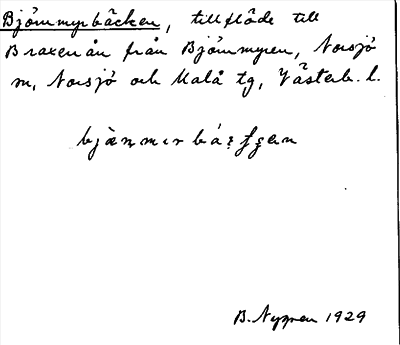 Björnmyrbäcken, tillflöde till
Braxenån från Björnmyren, Norsjö
m, Norsjö och Malå tg, Västerb. l.
B. Nygren 1929